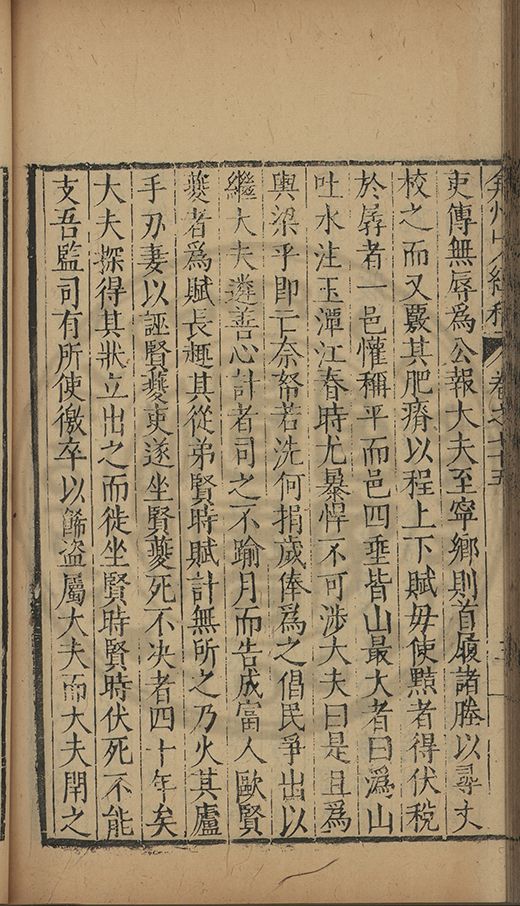 弇州山人續稿 卷之七十五
吏傳無辱為公報大夫至寧鄉則首履諸塍以尋丈
校之而又覈其肥瘠以程上下賦毋使黠者得伏稅
於孱者一邑懽稱平而邑四垂皆山最大者曰溈山
吐水注玉潭江春時尤暴悍不可涉大夫曰是且為
輿梁乎即亡奈帑若洗何捐歲俸為之倡民爭出以
繼大夫遴善心計者司之不踰月而告成富人歐賢
夔者為賦長趣其從弟賢時賦計無所之乃火其廬
手刃妻以誣賢夔吏遂坐賢夔死不決者四十年矣
大夫探得其狀立出之而徙坐賢時賢時伏死不能
支吾監司有所使徼卒以餙盜屬大夫而大夫閈之